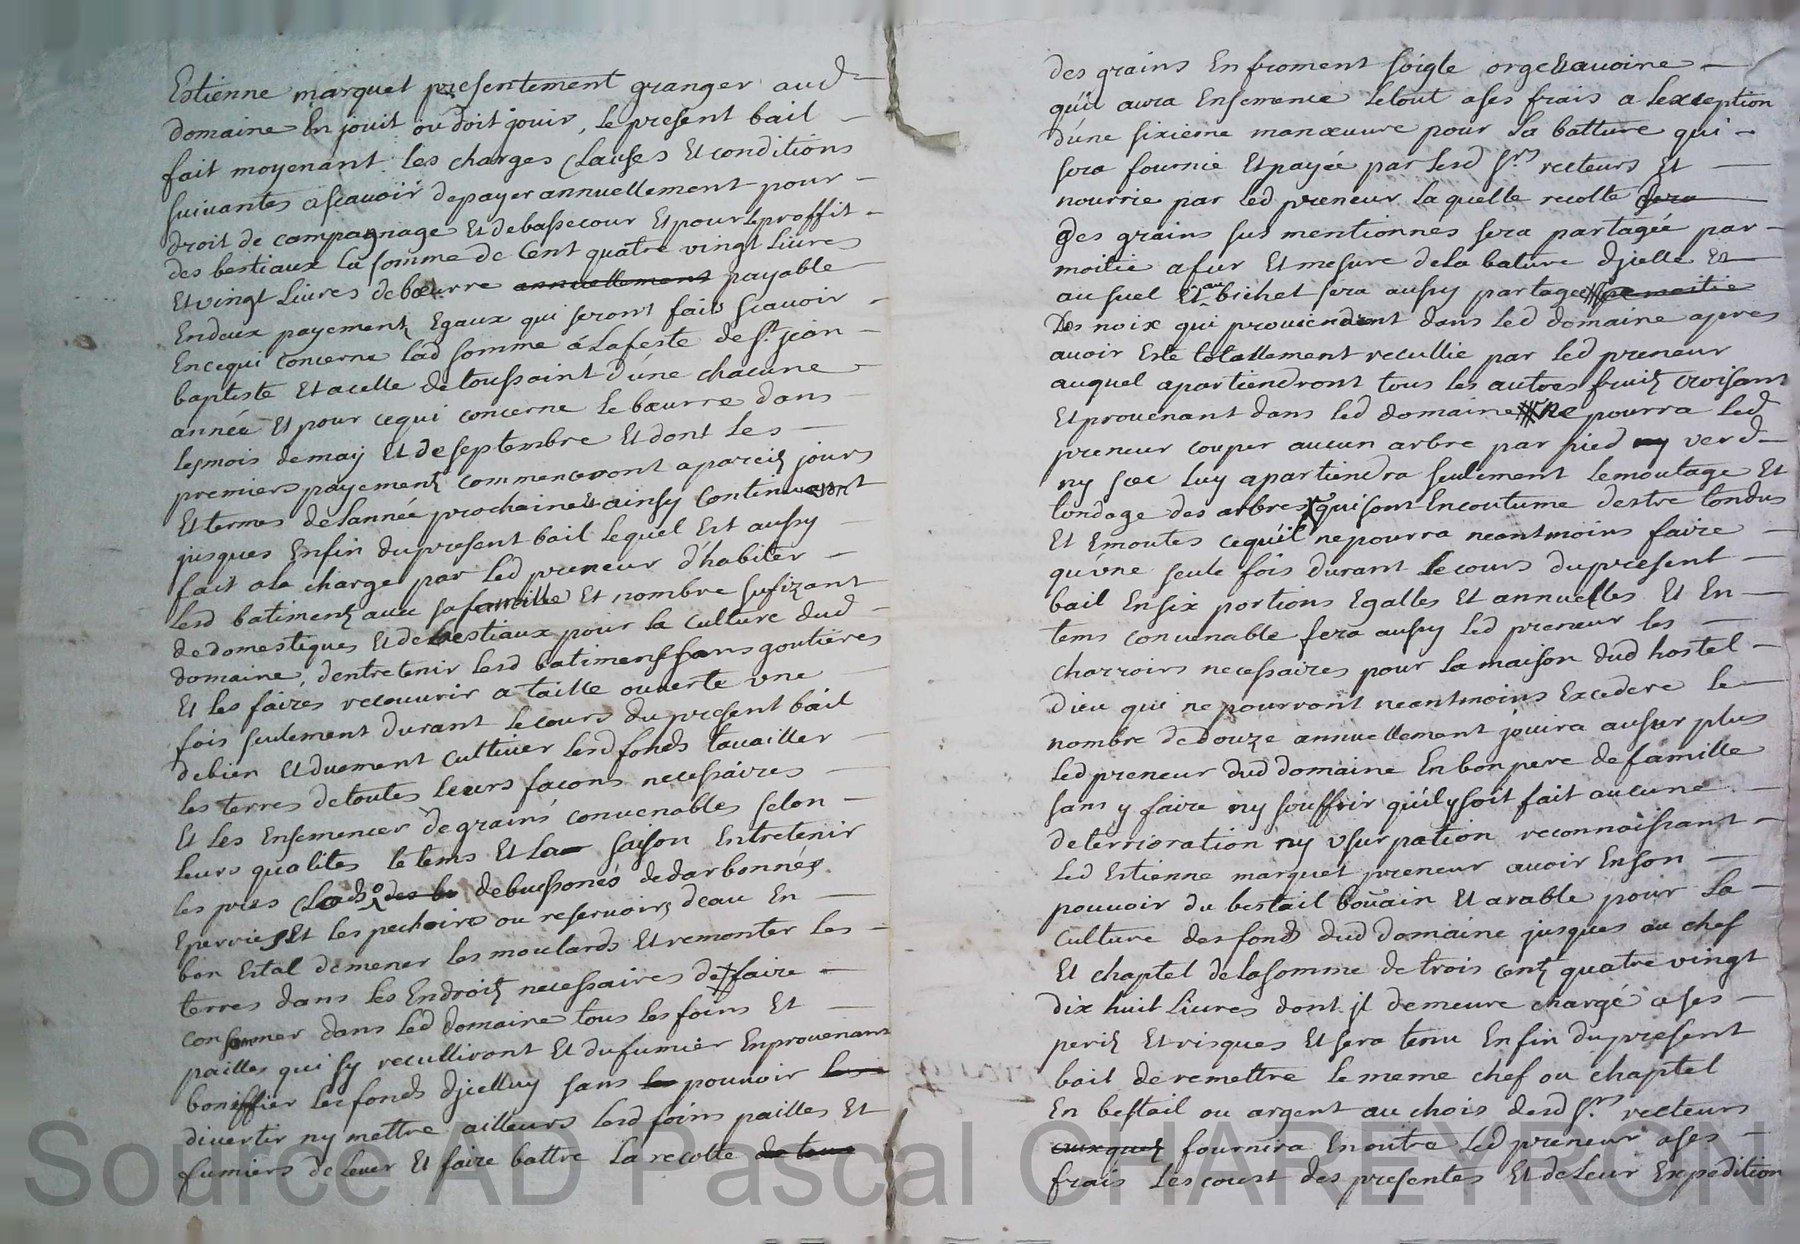 Estienne marquet presentement granger aud
domaine En jouit ou doit jouir, le present bail
fait moyenant les charges clauses Et conditions
suivantes ascavoir depayer annuellement pour
droit de campagnage Et debassecour Et pour le proffit
des bestiaux la somme de Cent quatre vingt Livres
Et vingt Livres de bœurre annuellement payable
En deux payements Egaux qui seront faits scavoir
En cequi Concerne lad somme a La feste de St jean
baptiste Et a celle de toussaint d'une chacune
année Et pour cequi concerne Le bœurre dans
les mois de may Et de septembre Et dont Les
premiers payements commenceront a pareils jours
Et termes de l'année prochaine Et ainsy Continuant
jusques Enfin du present bail Lequel Est aussy
fait a la charge par Led preneur d'habiter
Lesd batiments avec sa famille Et nombre sufizant
de domestiques Et de bestiaux pour la Culture dud
domaine, d'entretenir lesd batiments sans goutieres
Et les faires recouvrir a taille ouverte une
fois seulement durant le cours du present bail
de bien Et duement cultiver lesd fonds travailler
les terres de toutes leurs façons necessaires
Et Les Ensemencer de grains convenables selon
leurs qualités le tems Et La saison Entretenir
les prés Clos des bu debuissonés dedarbonnés
Eperriés Et les pechoirs ou reservoirs deau En
bon Estat demener les moulards Et remonter les
terres dans les Endroits necessaires de faire
consommer dans Led domaine tous les foins Et
pailles qui sy reculliront Et du fumier En provenant
boniffier les fonds djcelluy sans le pouvoir
divertir ny mettre ailleurs Lesd foins pailles Et
fumiers de lever Et faire battre La recolte de tous
des grains En froment soigle orge Et avoine
qu'il aura Ensemencé Le tout a ses frais a Lexception
d'une sixieme manœuvre pour La batture qui
sera fournie Et payée par Lesd Srs recteurs Et
nourrie par Led preneur Laquelle recolte sera
des grains sus mentionnés sera partagée par
moitié a fur Et mesure de La bature djcelle Et
au suel Et au bichet sera aussy partagée par moitié
Les noix qui proviendront dans Led domaine apres
avoir Esté totallement recullie par Led preneur
auquel apartiendront tous les autres fruits croisant
Et provenant dans Led domaine ne pourra Led
preneur couper aucun arbre par pied ny verd
ny sec Luy apartiendra seulement Lemoutage Et
tondage des arbres qui sont En coutume destre tondus
Et Emoutés cequ'il ne pourra neantmoins faire
qu'une seule fois durant Le cours du present
bail En six portions Egalles Et annuelles Et En
tems convenable fera aussy Led preneur les
charroirs necessaires pour La maison dud hostel
dieu qui ne pourront neantmoins Exceder le
nombre de douze annuellement jouira au surplus
Led preneur dud domaine En bon pere de famille
sans y faire ny souffrir qu'il y soit fait aucune
deterrioration ny usurpation reconnoissant
Led Estienne marquet preneur avoir En son
pouvoir du bestail bovain Et arable pour La
Culture des fonds dud domaine jusques au chef
Et chaptel de la somme de trois cents quatre vingt
dix huit Livres dont jl demeure chargé a ses
perils Et risques Et sera tenu En fin du present
bail de remettre Le meme chef ou chaptel
En bestail ou argent au choix desd Srs recteurs
auxquels fournira En outre Led preneur a ses
frais Les coust des presentes Et de Leur Expedition
Source AD Pascal CHAREYRON